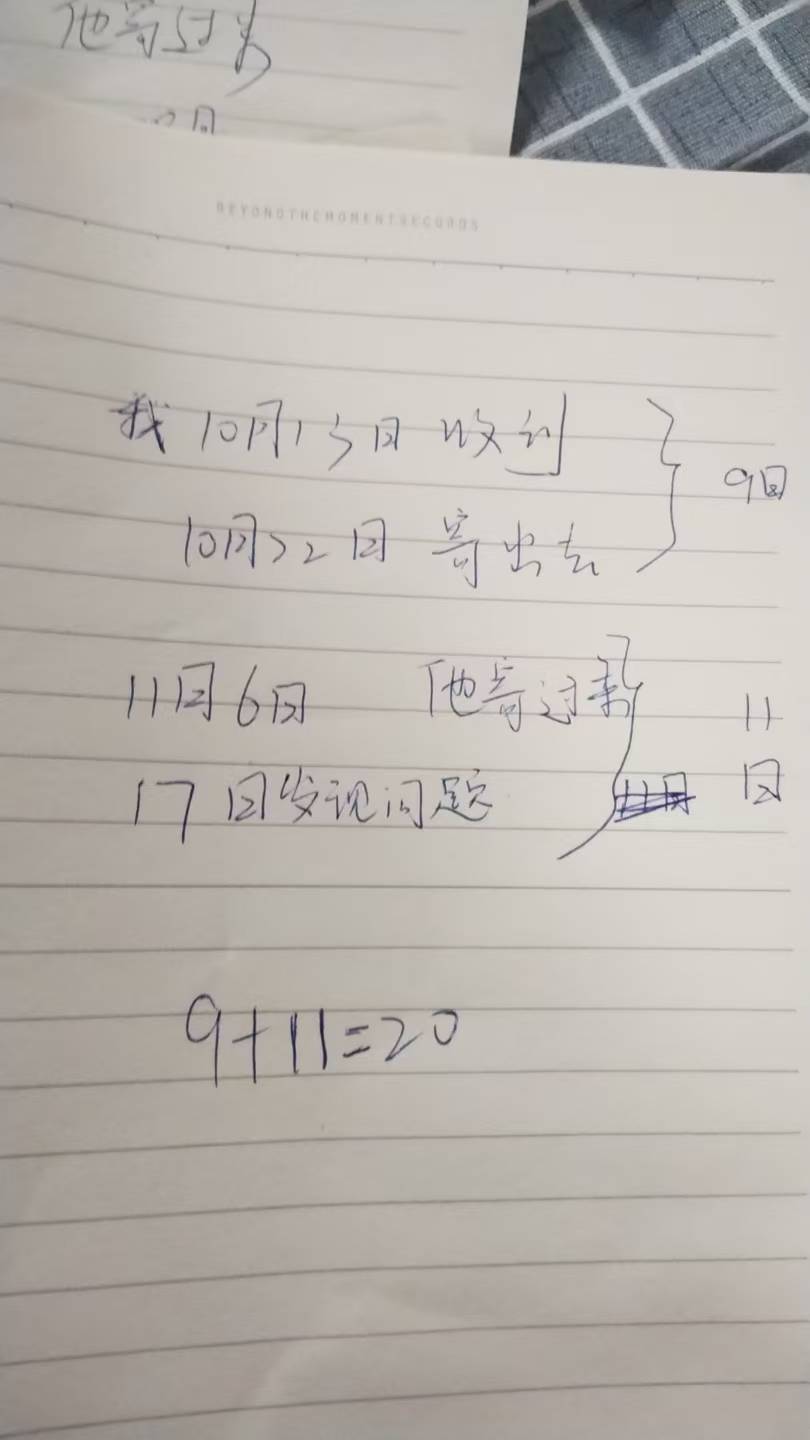 他寄过来
月
BEYONDTHEMOMENTRECORDS
我 10月13日 收到
9日
10月22日 寄出去
11月6日 他寄过来
11
17日发现问题
日
9+11=20